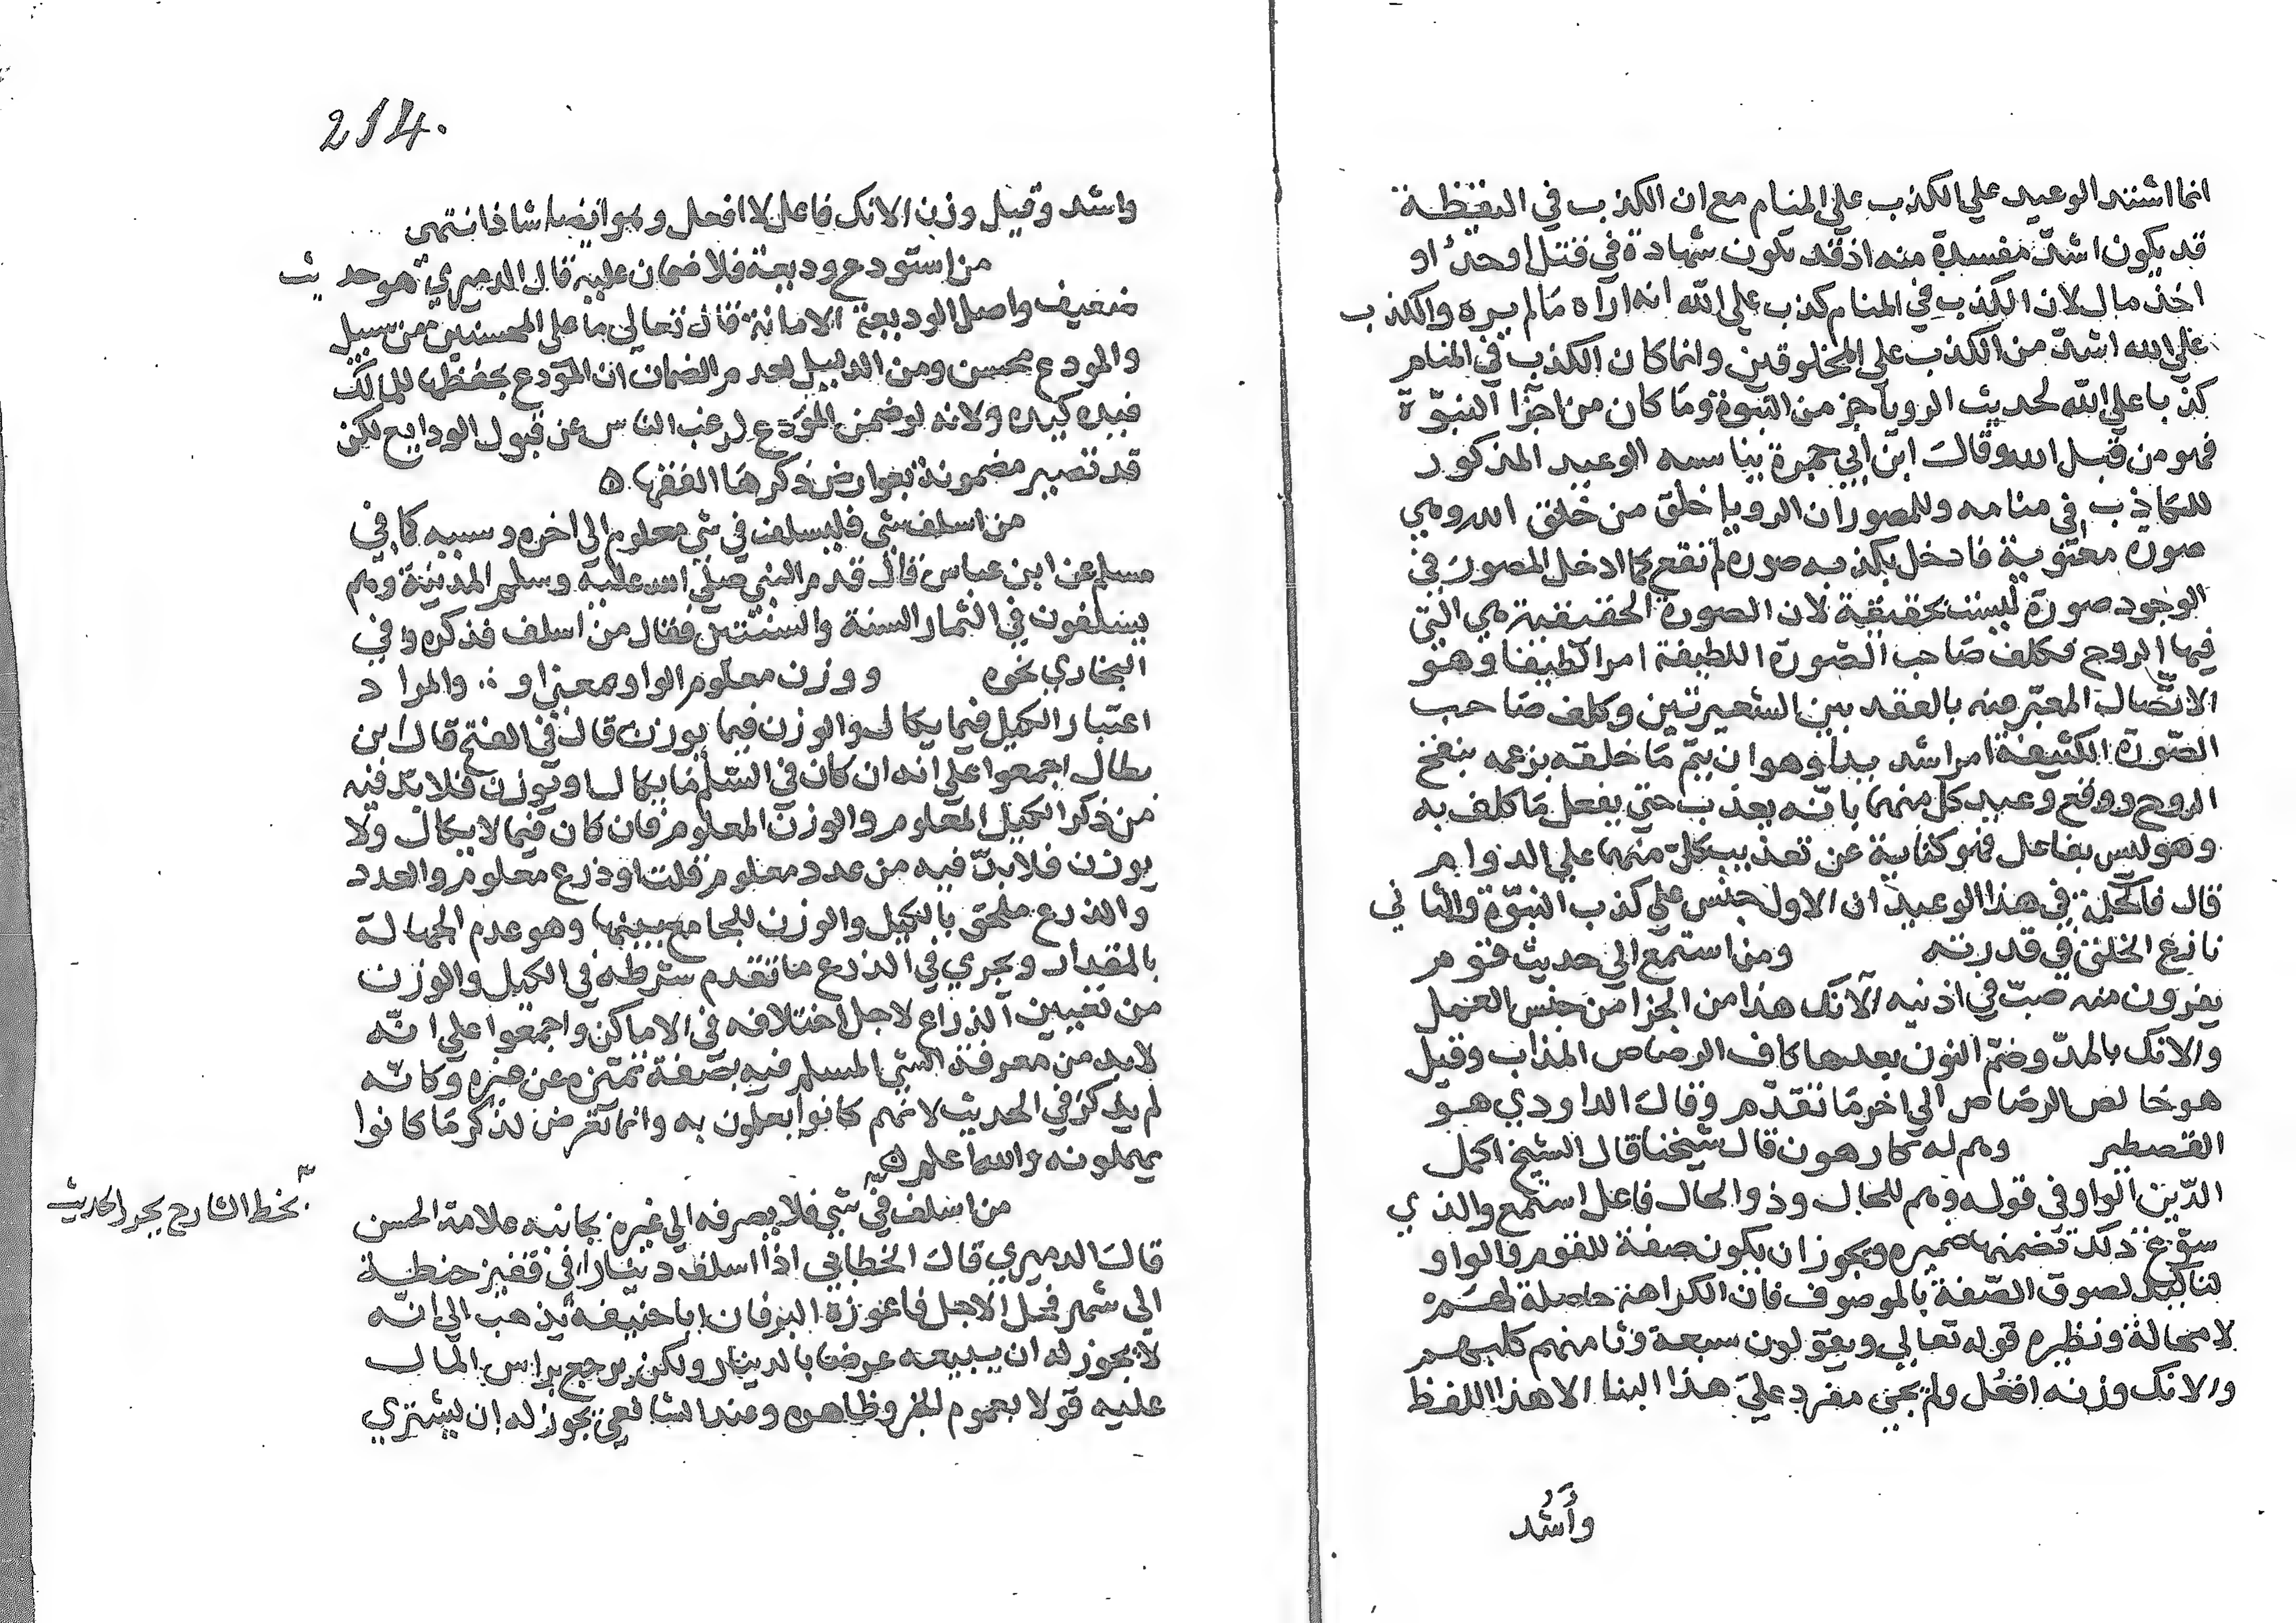 انما اشتد الوعيد علي الكذب علي المنام مع ان الكذب في اليقظة
قد يكون اشد مفسدة منه اذ قد يكون شهادة في قتل او حد او
اخذ مال لان الكذب في المنام كذب علي الله انه اراه مالم يره والكذب
علي الله اشد من الكذب علي المخلوقين وانما كان الكذب في المنام
كذبا علي الله لحديث الرويا جز من النبوة وما كان من اجزا النبوة
فهو من قبل الله وقال ابن ابي جمرة يناسبه الوعيد المذكور
للكاذب في منامه وللمصور ان الرويا خلق من خلق الله وهي
صورة معنوية فادخل بكذبه صورة لم تقع كما ادخل المصور في
الوجود صورة ليست بحقيقة لان الصورة الحقيقية هي التي
فيها الروح فكلف صاحب الصورة اللطيفة امرا لطيفا وهو
الاتصال المعبر عنه بالعقد بين الشعيرتين وكلف صاحب
الصورة الكثيفة امرا شديدا وهو ان يتم ما خلقه بزعمه بنفخ
الروح ووقع وعيد كل منهما بانه يعذب حتي يفعل ما كلف به
وهو ليس بفاعل فهو كناية عن تعذيب كل منهما علي الدوام
قال فالحكمة في هذا الوعيد ان الاول جنس علي كذب النبوة والثاني
نازع الخلق في قدرته ومن استمع الي حديث قوم
يفرون منه صب في اذنيه الآنك هذا من الجزا من جنس العمل
والانك بالمد وضم النون بعدها كاف الرصاص المذاب وقيل
هو خالص الرصاص الي اخر ما تقدم وقال الداودي هو
القصطير وهم له كارهون قال شيخنا قال الشيخ اكمل
الدين الواو في قوله وهم للحال وذو الحال فاعل استمع والذي
سوغ ذلك تضمنها ضميره ويجوز ان يكون صفة للقوم والواو
لتاكيد لصوق الصفة بالموصوف فان الكراهة حاصلة لهم
لا محالة ونظيره قوله تعالي ويقولون سبعة وثامنهم كلبهم
والانك وزنه افعل ولم يجي مفرد علي هذا البنا الا هذا اللفظ
وأشد
214.
واشد وقيل وزن الانك فاعل لا افعل وهو ايضا شاذ انتهى
من استودع وديعة فلا ضمان عليه قال الدميري هو حديث
ضعيف واصل الوديعة الامانة قال تعالي ما علي المحسنين من سبيل
والمودع محسن ومن الدليل لعدم الضمان ان المودع يحفظها للمالك
فيده كيده ولانه لو ضمن المودع لرغب الناس عن قبول الودايع لكن
قد تصير مضمونة بعوارض ذكرها الفقها ه
من اسلف شي فليسلف في شي معلوم الي اخره وسببه كما في
مسلم عن ابن عباس قال قدم النبي صلي الله عليه وسلم المدينة وهم
يسلفون في الثمار السنة والسنتين فقال من اسلف فذكره وفي
البخاري نحوه ووزن معلوم الواو بمعنى او والمراد
اعتبار الكيل فيما يكال والوزن فيما يوزن قال في الفتح قال ابن
بطال اجمعوا علي انه ان كان في السلم ما يكال او يوزن فلا بد فيه
من ذكر الكيل المعلوم والوزن المعلوم فان كان فيما لا يكال ولا
يوزن فلا بد فيه من عدد معلوم قلت او ذرع معلوم والعدد
والذرع ملحق بالكيل والوزن للجامع بينهما وهو عدم الجهالة
بالمقدار ويجري في الذرع ما تقدم شرطه في الكيل والوزن
من تعيين الذراع لاجل اختلافه في الاماكن واجمعوا علي انه
لا بد من معرفة الشي المسلم فيه بصفة تميزه عن غيره وكانه
لم يذكر في الحديث لانهم كانوا يعلمون به وانما تعرض لذكر ما كانوا
يهملونه والله اعلم ه
من اسلف في شي فلا يصرفه الي غيره بجانبه علامة الحسن
بخط الشارح يحرر الحديث
قال الدميري قال الخطابي اذا اسلف دينارا في قفيز حنطة
الي شهر فحل الاجل فاعوزه البر فان ابا حنيفة يذهب الي انه
لا يجوز له ان يبيعه عرضا بالدينار ولكن يرجع براس المال
عليه قولا بعموم الخبر وظاهره وعند الشافعي يجوز له ان يشتري